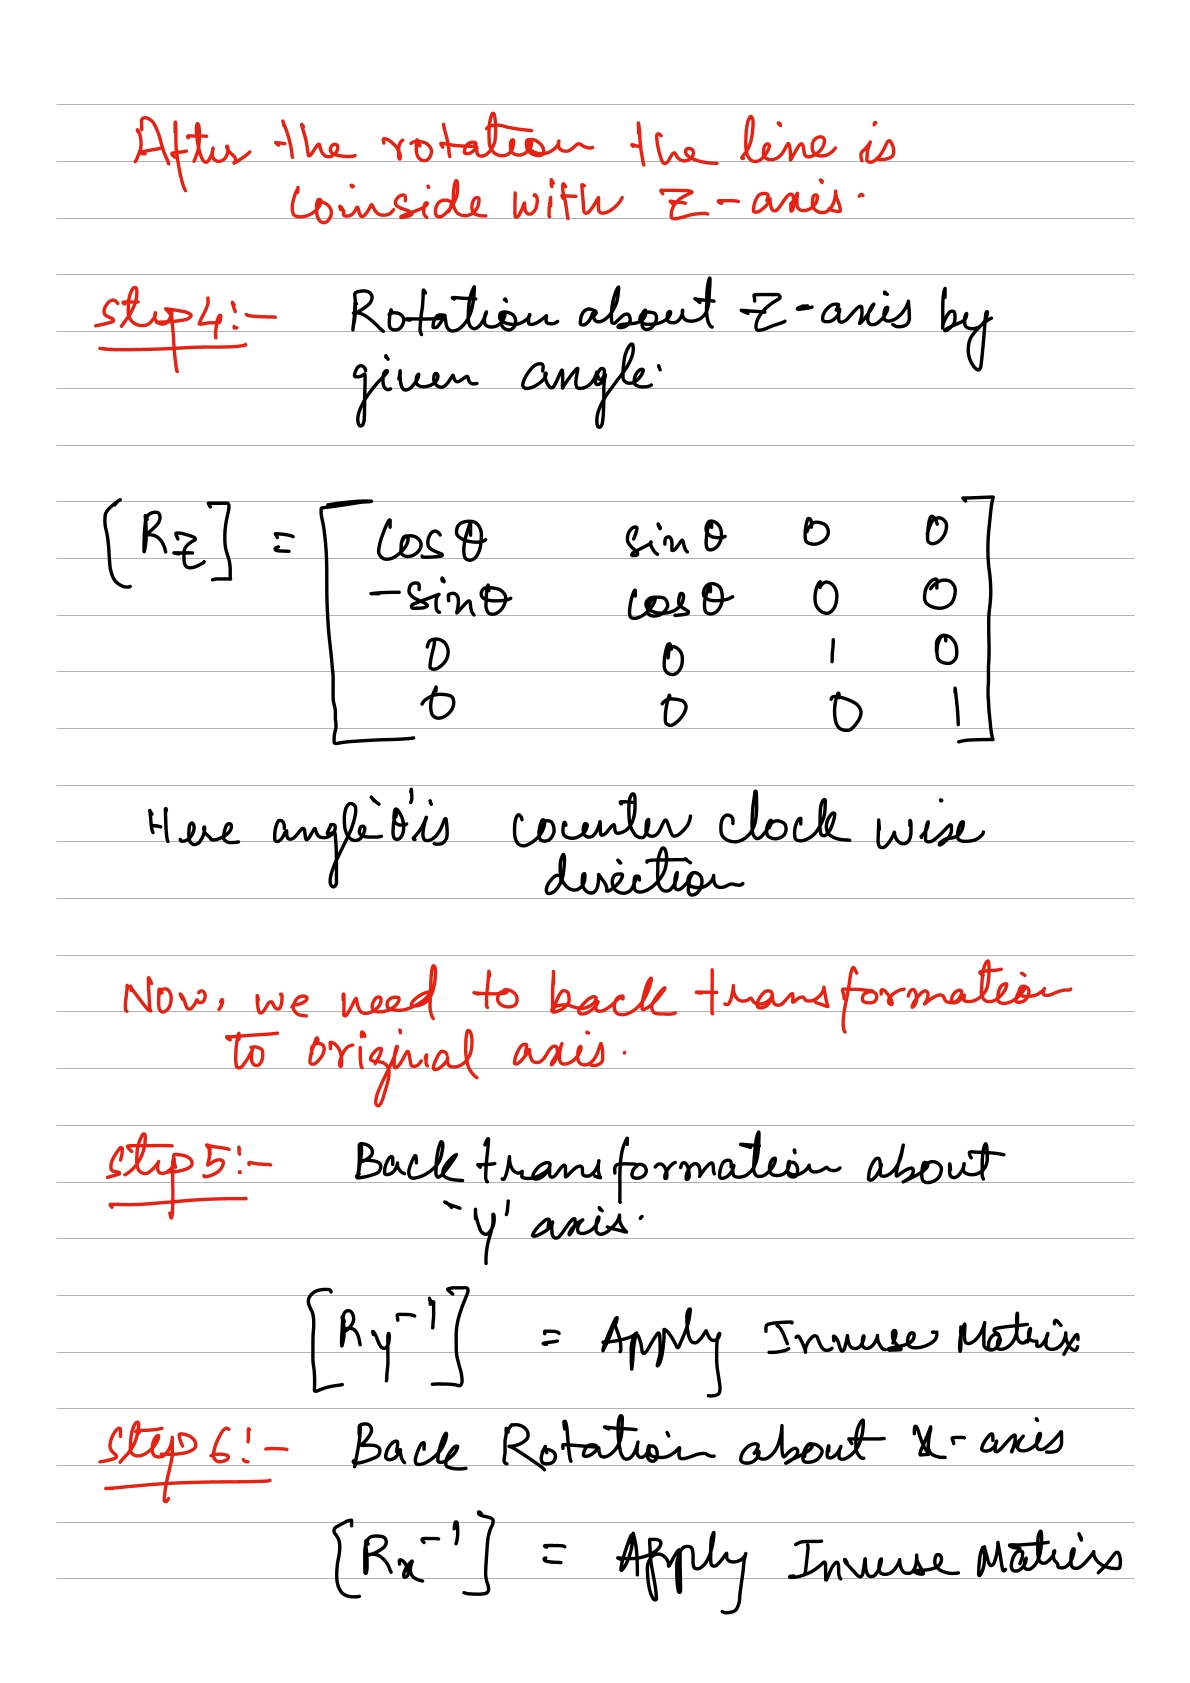 After the rotation the line is
coinside with Z-axis.
step4:- Rotation about Z-axis by
given angle.
[Rz] = [ cosθ sinθ 0 0
-sinθ cosθ 0 0
0 0 1 0
0 0 0 1 ]
Here angle 'θ' is counter clock wise
direction
Now, we need to back transformation
to original axis.
step5:- Back transformation about
'y' axis.
[Ry⁻¹] = Apply Inverse Matrix
step6:- Back Rotation about x-axis
[Rx⁻¹] = Apply Inverse Matrix